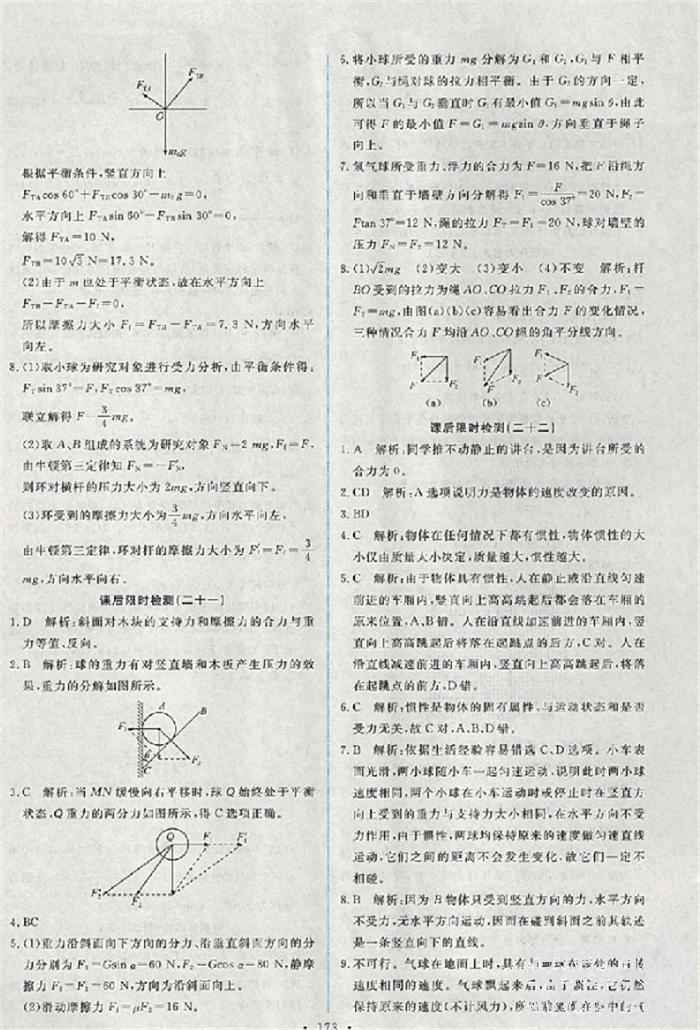 F_TA
F_TB
O
m₀g
根据平衡条件,竖直方向上
F_TA cos 60°+F_TB cos 30°-m₀g=0,
水平方向上 F_TA sin 60°-F_TB sin 30°=0,
解得 F_TA=10 N,
F_TB=10√3 N=17.3 N。
(2)由于 m 也处于平衡状态,故在水平方向上
F_TB-F_TA-F_f=0,
所以摩擦力大小 F_f=F_TB-F_TA=7.3 N,方向水平
向左。
8.(1)取小球为研究对象进行受力分析,由平衡条件得:
F_T sin 37°=F,F_T cos 37°=mg,
联立解得 F=3/4 mg。
(2)取 A、B 组成的系统为研究对象 F_N=2 mg,F_f=F,
由牛顿第三定律知 F_N=-F′_N,
则环对横杆的压力大小为 2mg,方向竖直向下。
(3)环受到的摩擦力大小为 3/4 mg,方向水平向左,
由牛顿第三定律,环对杆的摩擦力大小为 F′_f=F_f=3/4
mg,方向水平向右。
课后限时检测(二十一)
1. D 解析:斜面对木块的支持力和摩擦力的合力与重
力等值、反向。
2. B 解析:球的重力有对竖直墙和木板产生压力的效
果,重力的分解如图所示。
A
B
F₁
F₂
C
3. C 解析:当 MN 缓慢向右平移时,球 Q 始终处于平衡
状态,Q 重力的两分力如图所示,得 C 选项正确。
Q
F₁ F₁′
F₂′ F₂
4. BC
5.(1)重力沿斜面向下方向的分力、沿垂直斜面方向的分
力分别为 F₁=Gsin α=60 N,F₂=Gcos α=80 N,静摩
擦力 F_f=F₁=60 N,方向为沿斜面向上。
(2)滑动摩擦力 F_f=μF₂=16 N。
6.将小球所受的重力 mg 分解为 G₁ 和 G₂,G₁ 与 F 相平
衡,G₂ 与绳对球的拉力相平衡。由于 G₂ 的方向一定,
所以当 G₁ 与 G₂ 垂直时 G₁ 有最小值 G₁=mgsin θ,由此
可得 F 的最小值 F=G₁=mgsin θ,方向垂直于绳子
向上。
7.氢气球所受重力、浮力的合力为 F=16 N,把 F 沿绳方
向和垂直于墙壁方向分解得 F₁=F/cos 37°=20 N,F₂=
Ftan 37°=12 N,绳的拉力 F_T=F₁=20 N,球对墙壁的
压力 F_N=F₂=12 N。
8.(1)√2mg (2)变大 (3)变小 (4)不变 解析:杆
BO 受到的拉力为绳 AO、CO 拉力 F₁、F₂ 的合力,F₁=
F₂=mg,由图(a)(b)(c)容易看出合力 F 的变化情况,
三种情况合力 F 均沿 AO、CO 绳的角平分线方向。
F₁ F F₂ F₁ F F₂ F₁ F F₂
(a) (b) (c)
课后限时检测(二十二)
1. A 解析:同学推不动静止的讲台,是因为讲台所受的
合力为 0。
2. CD 解析:A 选项说明力是物体的速度改变的原因。
3. BD
4. C 解析:物体在任何情况下都有惯性,物体惯性的大
小仅由质量大小决定,质量越大,惯性越大。
5. C 解析:由于物体具有惯性,人在静止或沿直线匀速
前进的车厢内,竖直向上高高跳起后都会落在车厢的
原来位置,A、B 错。人在沿直线加速前进的车厢内,竖
直向上高高跳起后将落在起跳点的后方,C 对。人在
沿直线减速前进的车厢内,竖直向上高高跳起后,将落
在起跳点的前方,D 错。
6. C 解析:惯性是物体的固有属性,与运动状态和是否
受力无关,故 C 对,A、B、D 错。
7. B 解析:依据生活经验容易错选 C、D 选项。小车表
面光滑,两小球随小车一起匀速运动,说明此时两小球
速度相同,两个小球在小车运动时或停止时在竖直方
向上受到的重力与支持力大小相同,在水平方向不受
力作用,由于惯性,两球均保持原来的速度做匀速直线
运动,它们之间的距离不会发生变化,故它们一定不
相碰。
8. B 解析:因为 B 物体只受到竖直方向的力,水平方向
不受力,无水平方向运动,因而在碰到斜面之前其轨迹
是一条竖直向下的直线。
9.不可行。气球在地面上时,具有与
速度相同的速度。气球飘起来后,由于惯性,它仍然
保持原来的速度(不计风力),所
173